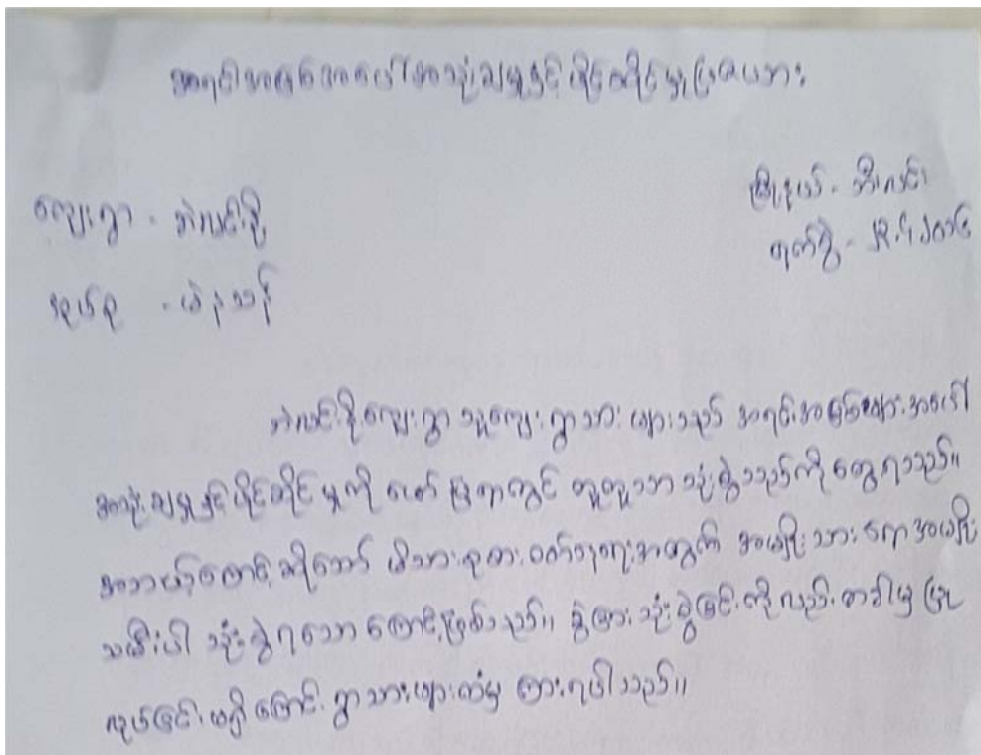 အရင်းအမြစ်အပေါ်အသုံးချမှုနှင့်ပိုင်ဆိုင်မှုပြဇယား
မြို့နယ် - ဘီးလင်း
ကျေးရွာ - ဘဲလင်းစို့
ရက်စွဲ -
အုပ်စု - ဖဲနသန်
ဘဲလင်းစို့ကျေးရွာ သူကျေးရွာသား များသည် အရင်းအမြစ်များ အပေါ်
အသုံးချမှုနှင့်ပိုင်ဆိုင်မှုကို ဖော်ပြရာတွင် တူတူသာ သုံးစွဲသည်ကို တွေ့ရသည်။
အဘယ့်ကြောင့်ဆိုသော် မိသားစုစားဝတ်နေရေးအတွက် အမျိုးသားရော အမျိုး
သမီးပါ သုံးစွဲရသော ကြောင့်ဖြစ်သည်။ ခွဲခြားသုံးစွဲခြင်းကိုလည်း တခါမှ ပြု
လုပ်ခြင်းမရှိကြောင်း ရွာသားများထံမှ ကြားရပါသည်။